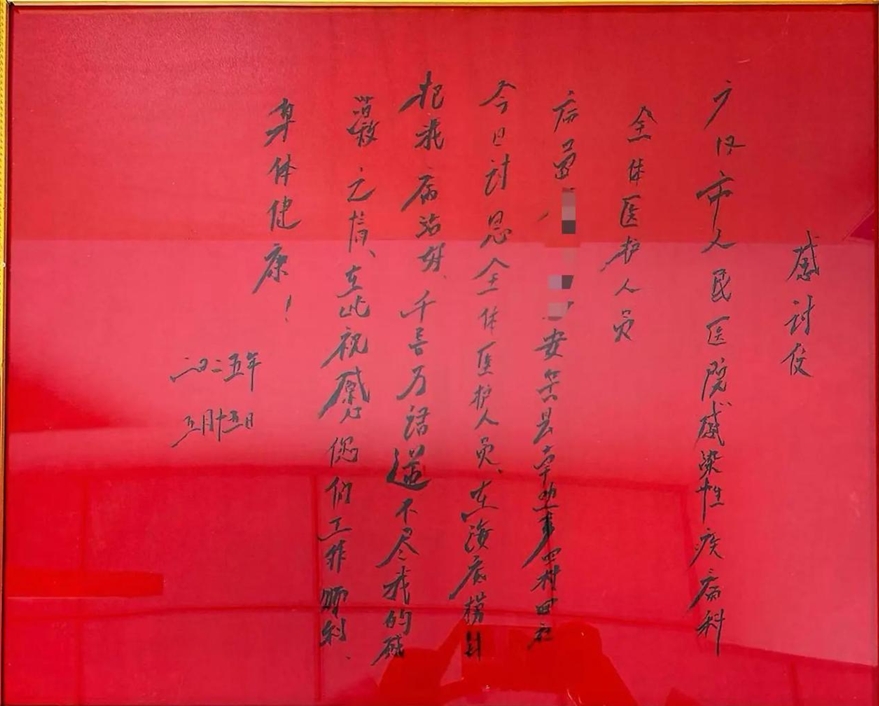 感讨
广汉市人民医院感染性疾病科
全体医护人员
病员安岳县村四社
今日讨恩全体医护人员、在海底捞针
把我病治好、千言万语道不尽我的感
激之情、在此祝愿您们工作顺利、
身体健康！
二〇二五年
五月十五日